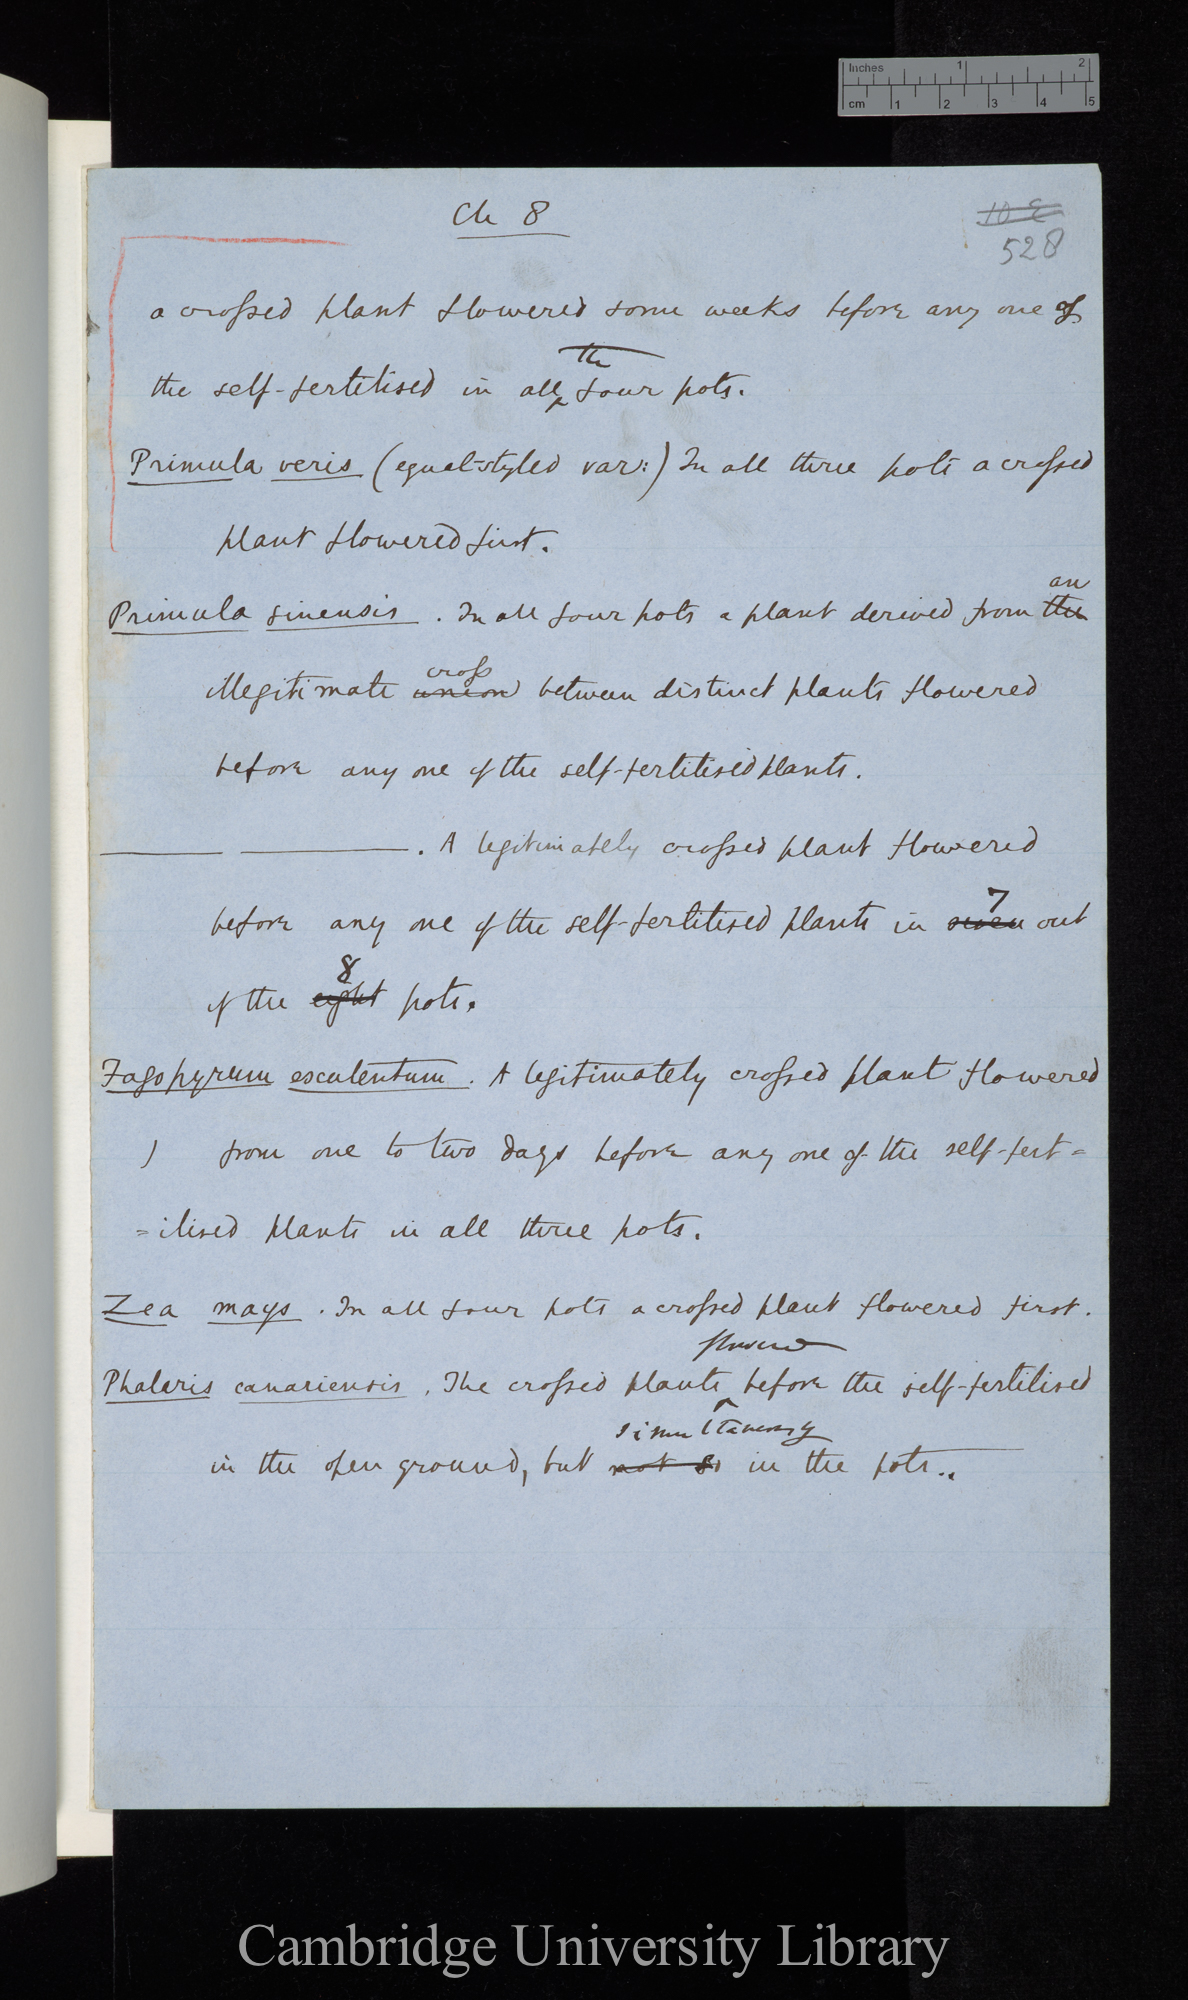 Inches 1 2
cm 1 2 3 4 5
Ch 8
528
a crossed plant flowered some weeks before any one of
the
the self-fertilised in all four pots.
Primula veris (equal-styled var:) In all three pots a crossed
plant flowered first.
an
Primula sinensis. In all four pots a plant derived from the
cross
illegitimate union between distinct plants flowered
before any one of the self-fertilised plants.
——— ———. A legitimately crossed plant flowered
7
before any one of the self-fertilised plants in seven out
8
of the eight pots.
Fagopyrum esculentum. A legitimately crossed plant flowered
) from one to two days before any one of the self-fert=
=ilised plants in all three pots.
Zea mays. In all four pots a crossed plant flowered first.
flowered
Phalaris canariensis. The crossed plants before the self-fertilised
simultaneously
in the open ground, but not so in the pots..
Cambridge University Library